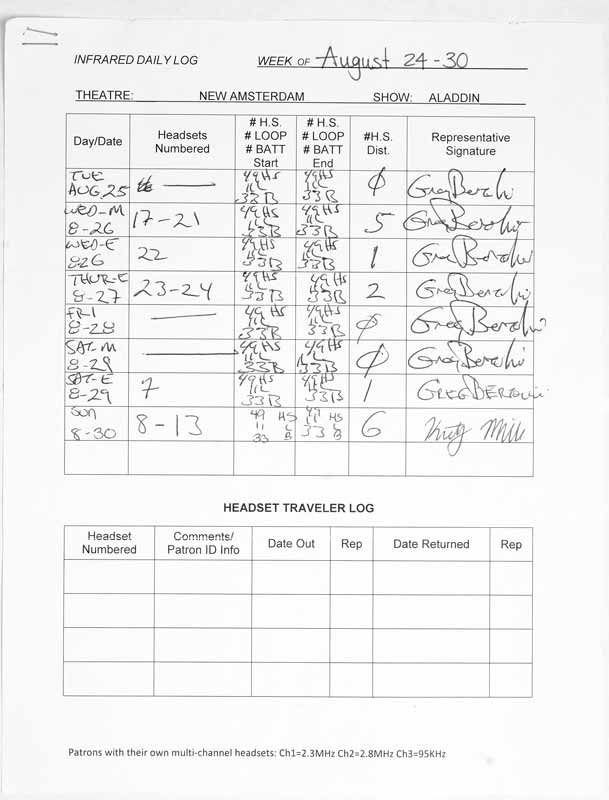 INFRARED DAILY LOG WEEK OF August 24-30
THEATRE: NEW AMSTERDAM SHOW: ALADDIN
Day/Date Headsets Numbered # H.S. # LOOP # BATT Start # H.S. # LOOP # BATT End #H.S. Dist. Representative Signature
TUE AUG 25 — 49HS 11L 33B 49HS 11L 33B ∅ Greg
WED-M 8-26 17-21 49HS 11L 33B 49HS 11L 33B 5 Greg
WED-E 826 22 49HS 11L 33B 49HS 11L 33B 1 Greg
THUR-E 8-27 23-24 49HS 11L 33B 49HS 11L 33B 2 Greg
FRI 8-28 — 49HS 11L 33B 49HS 11L 33B ∅ Greg
SAT-M 8-29 — 49HS 11L 33B 49HS 11L 33B ∅ Greg
SAT-E 8-29 7 49HS 11L 33B 49HS 11L 33B 1 GREG
SUN 8-30 8-13 49 HS 11 L 33 B 49 HS 11 L 33 B 6
HEADSET TRAVELER LOG
Headset Numbered Comments/ Patron ID Info Date Out Rep Date Returned Rep
Patrons with their own multi-channel headsets: Ch1=2.3MHz Ch2=2.8MHz Ch3=95KHz